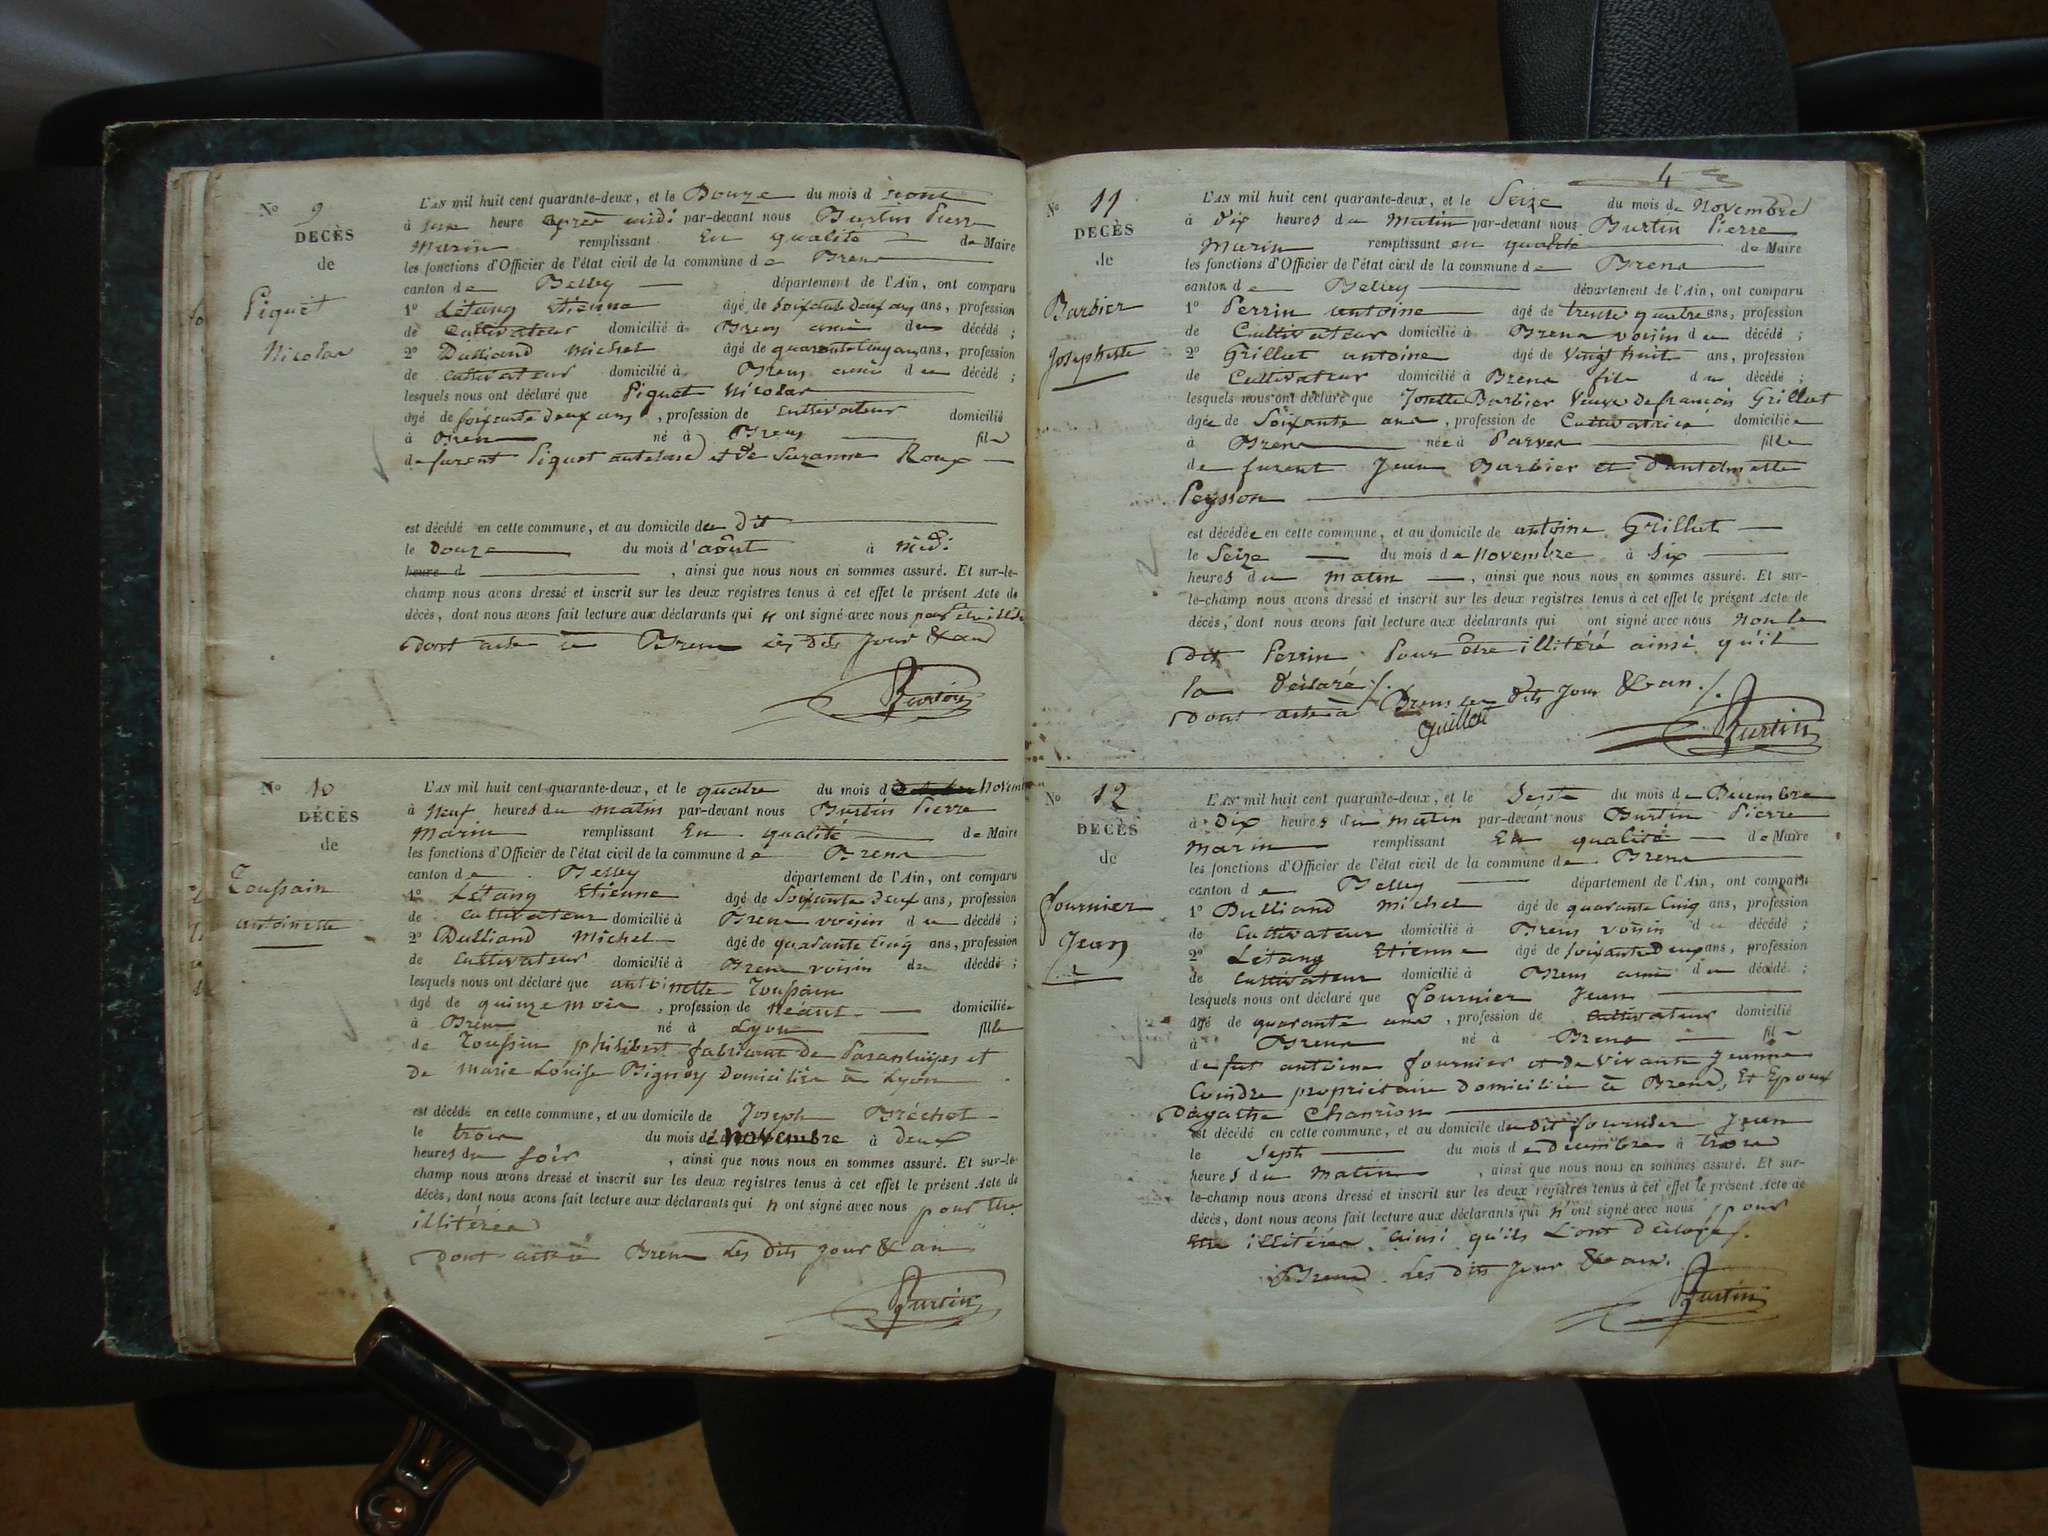 N° 9
DECÈS
de
Piquet
Nicolas
L'AN mil huit cent quarante-deux, et le Douze du mois d'août
à une heure après midi par-devant nous Burtin Pierre
Marin remplissant En qualité de Maire
les fonctions d'Officier de l'état civil de la commune de Brens
canton de Belley département de l'Ain, ont comparu
1° Létang Etienne âgé de Soixante Deux ans ans, profession
de Cultivateur domicilié à Brens amis du décédé ;
2° Dulliand Michel âgé de quarante Cinq ans ans, profession
de Cultivateur domicilié à Brens amis du décédé ;
lesquels nous ont déclaré que Piquet Nicolas
âgé de soixante deux ans, profession de Cultivateur domicilié
à Brens né à Brens fils
de furent Piquet antelme et de Suzanne Roux
est décédé en cette commune, et au domicile du dit
le Douze du mois d'août à Midi
heure d , ainsi que nous nous en sommes assuré. Et sur-le-
champ nous avons dressé et inscrit sur les deux registres tenus à cet effet le présent Acte de
décès, dont nous avons fait lecture aux déclarants qui n ont signé avec nous pour être illit
Dont acte à Brens les Dits Jour & an
Burtin
N° 10
DÉCÈS
de
Toussain
antoinette
L'AN mil huit cent quarante-deux, et le quatre du mois d Novemb
à Neuf heures du matin par-devant nous Burtin Pierre
Marin remplissant En qualité de Maire
les fonctions d'Officier de l'état civil de la commune de Brens
canton de Belley département de l'Ain, ont comparu
1° Létang Etienne âgé de Soixante Deux ans, profession
de Cultivateur domicilié à Brens voisin du décédé ;
2° Dulliand Michel âgé de quarante Cinq ans, profession
de Cultivateur domicilié à Brens voisin du décédé ;
lesquels nous ont déclaré que antoinette Toussain
âgé de quinze mois, profession de Néant domiciliée
à Brens né à Lyon fille
de Toussin philibert fabricant de Parapluyes et
De Marie Louise Bignoy Domiciliés à Lyon
est décédé en cette commune, et au domicile de Joseph Bréchet
le trois du mois de Novembre à deux
heures du soir , ainsi que nous nous en sommes assuré. Et sur-le-
champ nous avons dressé et inscrit sur les deux registres tenus à cet effet le présent Acte de
décès, dont nous avons fait lecture aux déclarants qui n ont signé avec nous pour être
illitérés
Dont acte à Brens Les Dits jour & an
Burtin
4
N° 11
DECÈS
de
Barbier
Josephte
L'AN mil huit cent quarante-deux, et le Seize du mois de Novembre
à Dix heures du Matin par-devant nous Burtin Pierre
Marin remplissant en qualité de Maire
les fonctions d'Officier de l'état civil de la commune de Brens
canton de Belley département de l'Ain, ont comparu
1° Perrin antoine âgé de trente quatre ans, profession
de Cultivateur domicilié à Brens voisin du décédé ;
2° Grillet antoine âgé de Vingt huit ans, profession
de Cultivateur domicilié à Brens fils du décédé ;
lesquels nous ont déclaré que Josette Barbier Veuve de françois Grillet
âgée de Soixante ans, profession de Cultivatrice domiciliée
à Brens née à Parves fille
de furent Jean Barbier et D'antelmette
Peysson
est décédée en cette commune, et au domicile de antoine Grillet
le Seize du mois de Novembre à Six
heures du matin , ainsi que nous nous en sommes assuré. Et sur-
le-champ nous avons dressé et inscrit sur les deux registres tenus à cet effet le présent Acte de
décès, dont nous avons fait lecture aux déclarants qui ont signé avec nous Non le
Dit Perrin Pour être illitéré ainsi qu'il
la Déclaré ./.
Dont acte à Brens les Dits Jour & an ./.
Burtin
N° 12
DECÈS
de
fournier
Jean
L'AN mil huit cent quarante-deux, et le Septe du mois de Décembre
à Dix heures du matin par-devant nous Burtin Pierre
Marin remplissant En qualité de Maire
les fonctions d'Officier de l'état civil de la commune de Brens
canton de Belley département de l'Ain, ont comparu
1° Dulliand Michel âgé de quarante Cinq ans, profession
de Cultivateur domicilié à Brens voisin du décédé ;
2° Létang Etienne âgé de Soixante Deux ans, profession
de Cultivateur domicilié à Brens ami du décédé ;
lesquels nous ont déclaré que fournier Jean
âgé de quarante ans, profession de Cultivateur domicilié
à Brens né à Brens fils
de fut antoine fournier et de Vivante Jeanne
Coindre propriétaire domiciliée à Brens, Et Epoux
D'agathe Chanrion
est décédé en cette commune, et au domicile du dit fournier Jean
le Septe du mois de Décembre à trois
heures du Matin , ainsi que nous nous en sommes assuré. Et sur-
le-champ nous avons dressé et inscrit sur les deux registres tenus à cet effet le présent Acte de
décès, dont nous avons fait lecture aux déclarants qui n'ont signé avec nous pour
être illitérés ainsi qu'ils L'ont déclaré ./.
à Brens Les dits jour & an.
Burtin